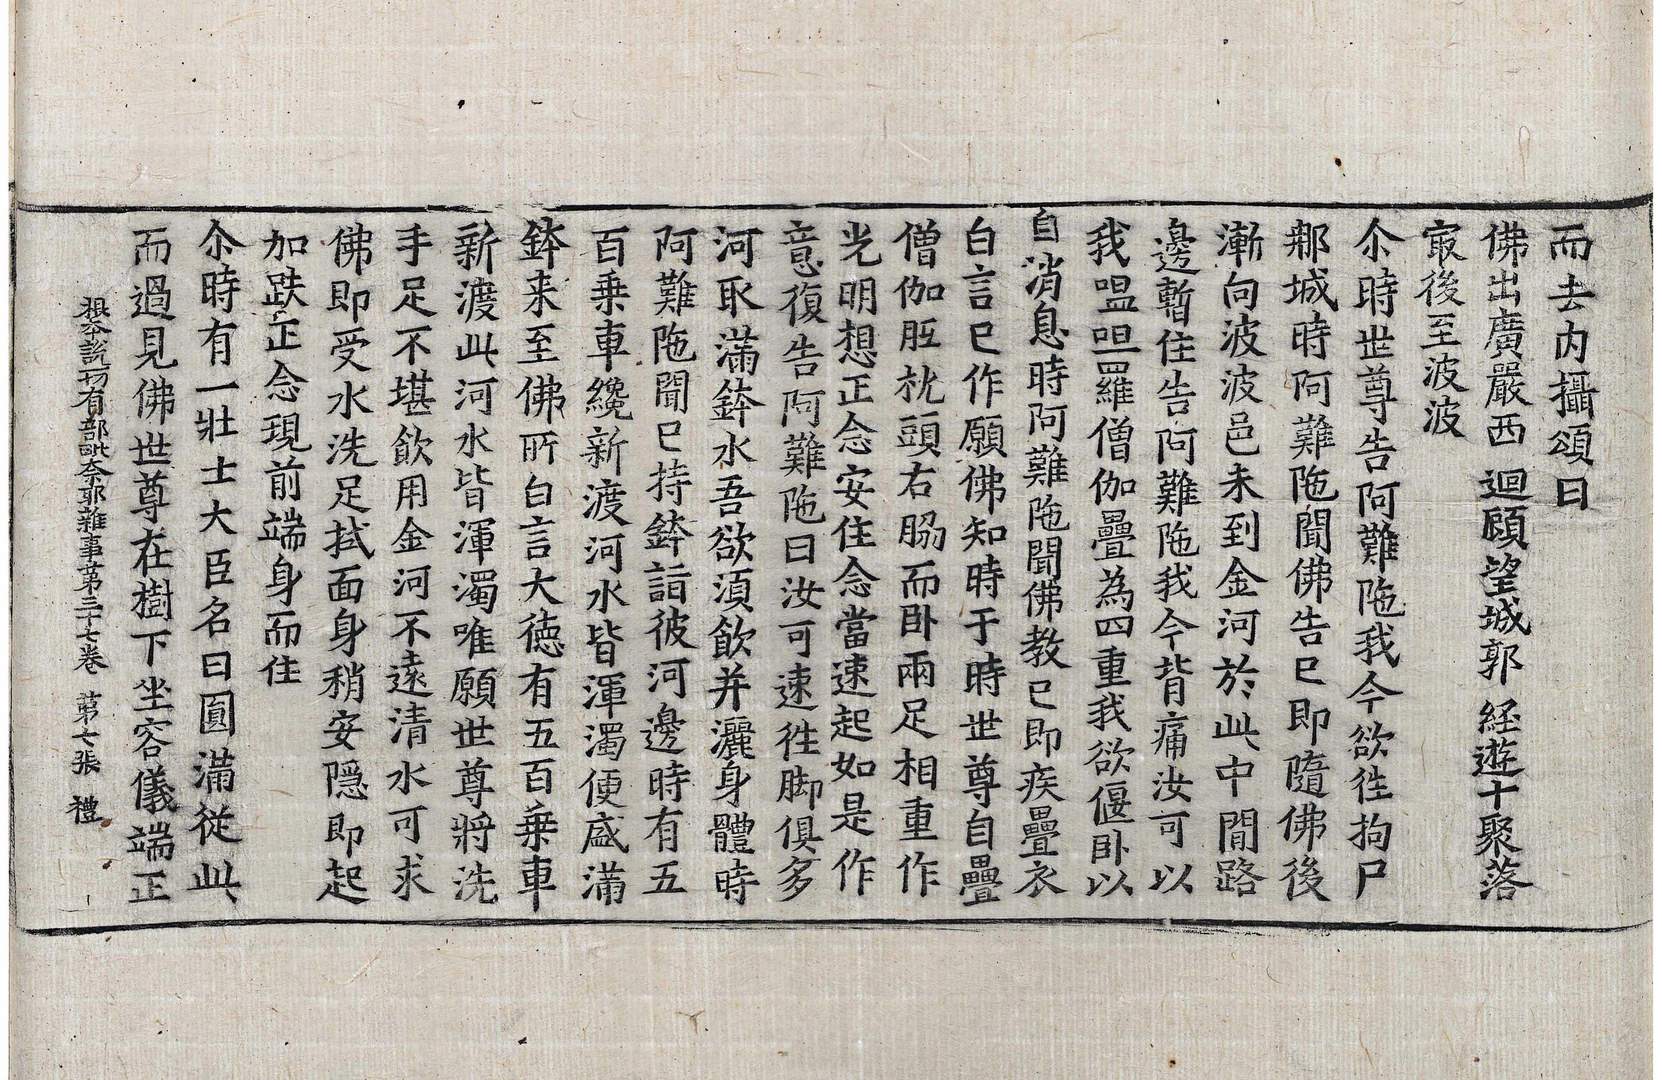 而去内攝頌曰
佛出廣嚴西 迴顧望城郭 經遊十聚落
㝡後至波波
尒時世尊告阿難陁我今欲往拘尸
那城時阿難陁聞佛告已即隨佛後
漸向波波邑未到金河於此中間路
邊暫住告阿難陁我今背痛汝可以
我嗢呾羅僧伽疊為四重我欲偃卧以
自消息時阿難陁聞佛教已即疾疊衣
白言已作願佛知時于時世尊自疊
僧伽胝枕頭右脇而卧兩足相重作
光明想正念安住念當速起如是作
意復告阿難陁曰汝可速往脚俱多
河取滿鉢水吾欲須飲并灑身體時
阿難陁聞已持鉢詣彼河邊時有五
百乗車纔新渡河水皆渾濁便盛滿
鉢来至佛所白言大徳有五百乗車
新渡此河水皆渾濁唯願世尊將洗
手足不堪飲用金河不遠清水可求
佛即受水洗足拭面身稍安隱即起
加趺正念現前端身而住
尒時有一壯士大臣名曰圓滿從此
而過見佛世尊在樹下坐容儀端正
根本說一切有部毗奈耶雜事第三十七卷 第七張 禮